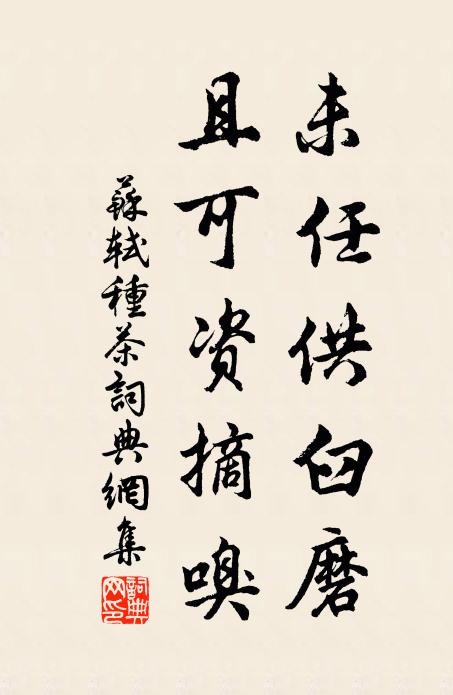 未任供臼磨
且可资摘嗅
蘇軾種茶詞典網集
詞典网印